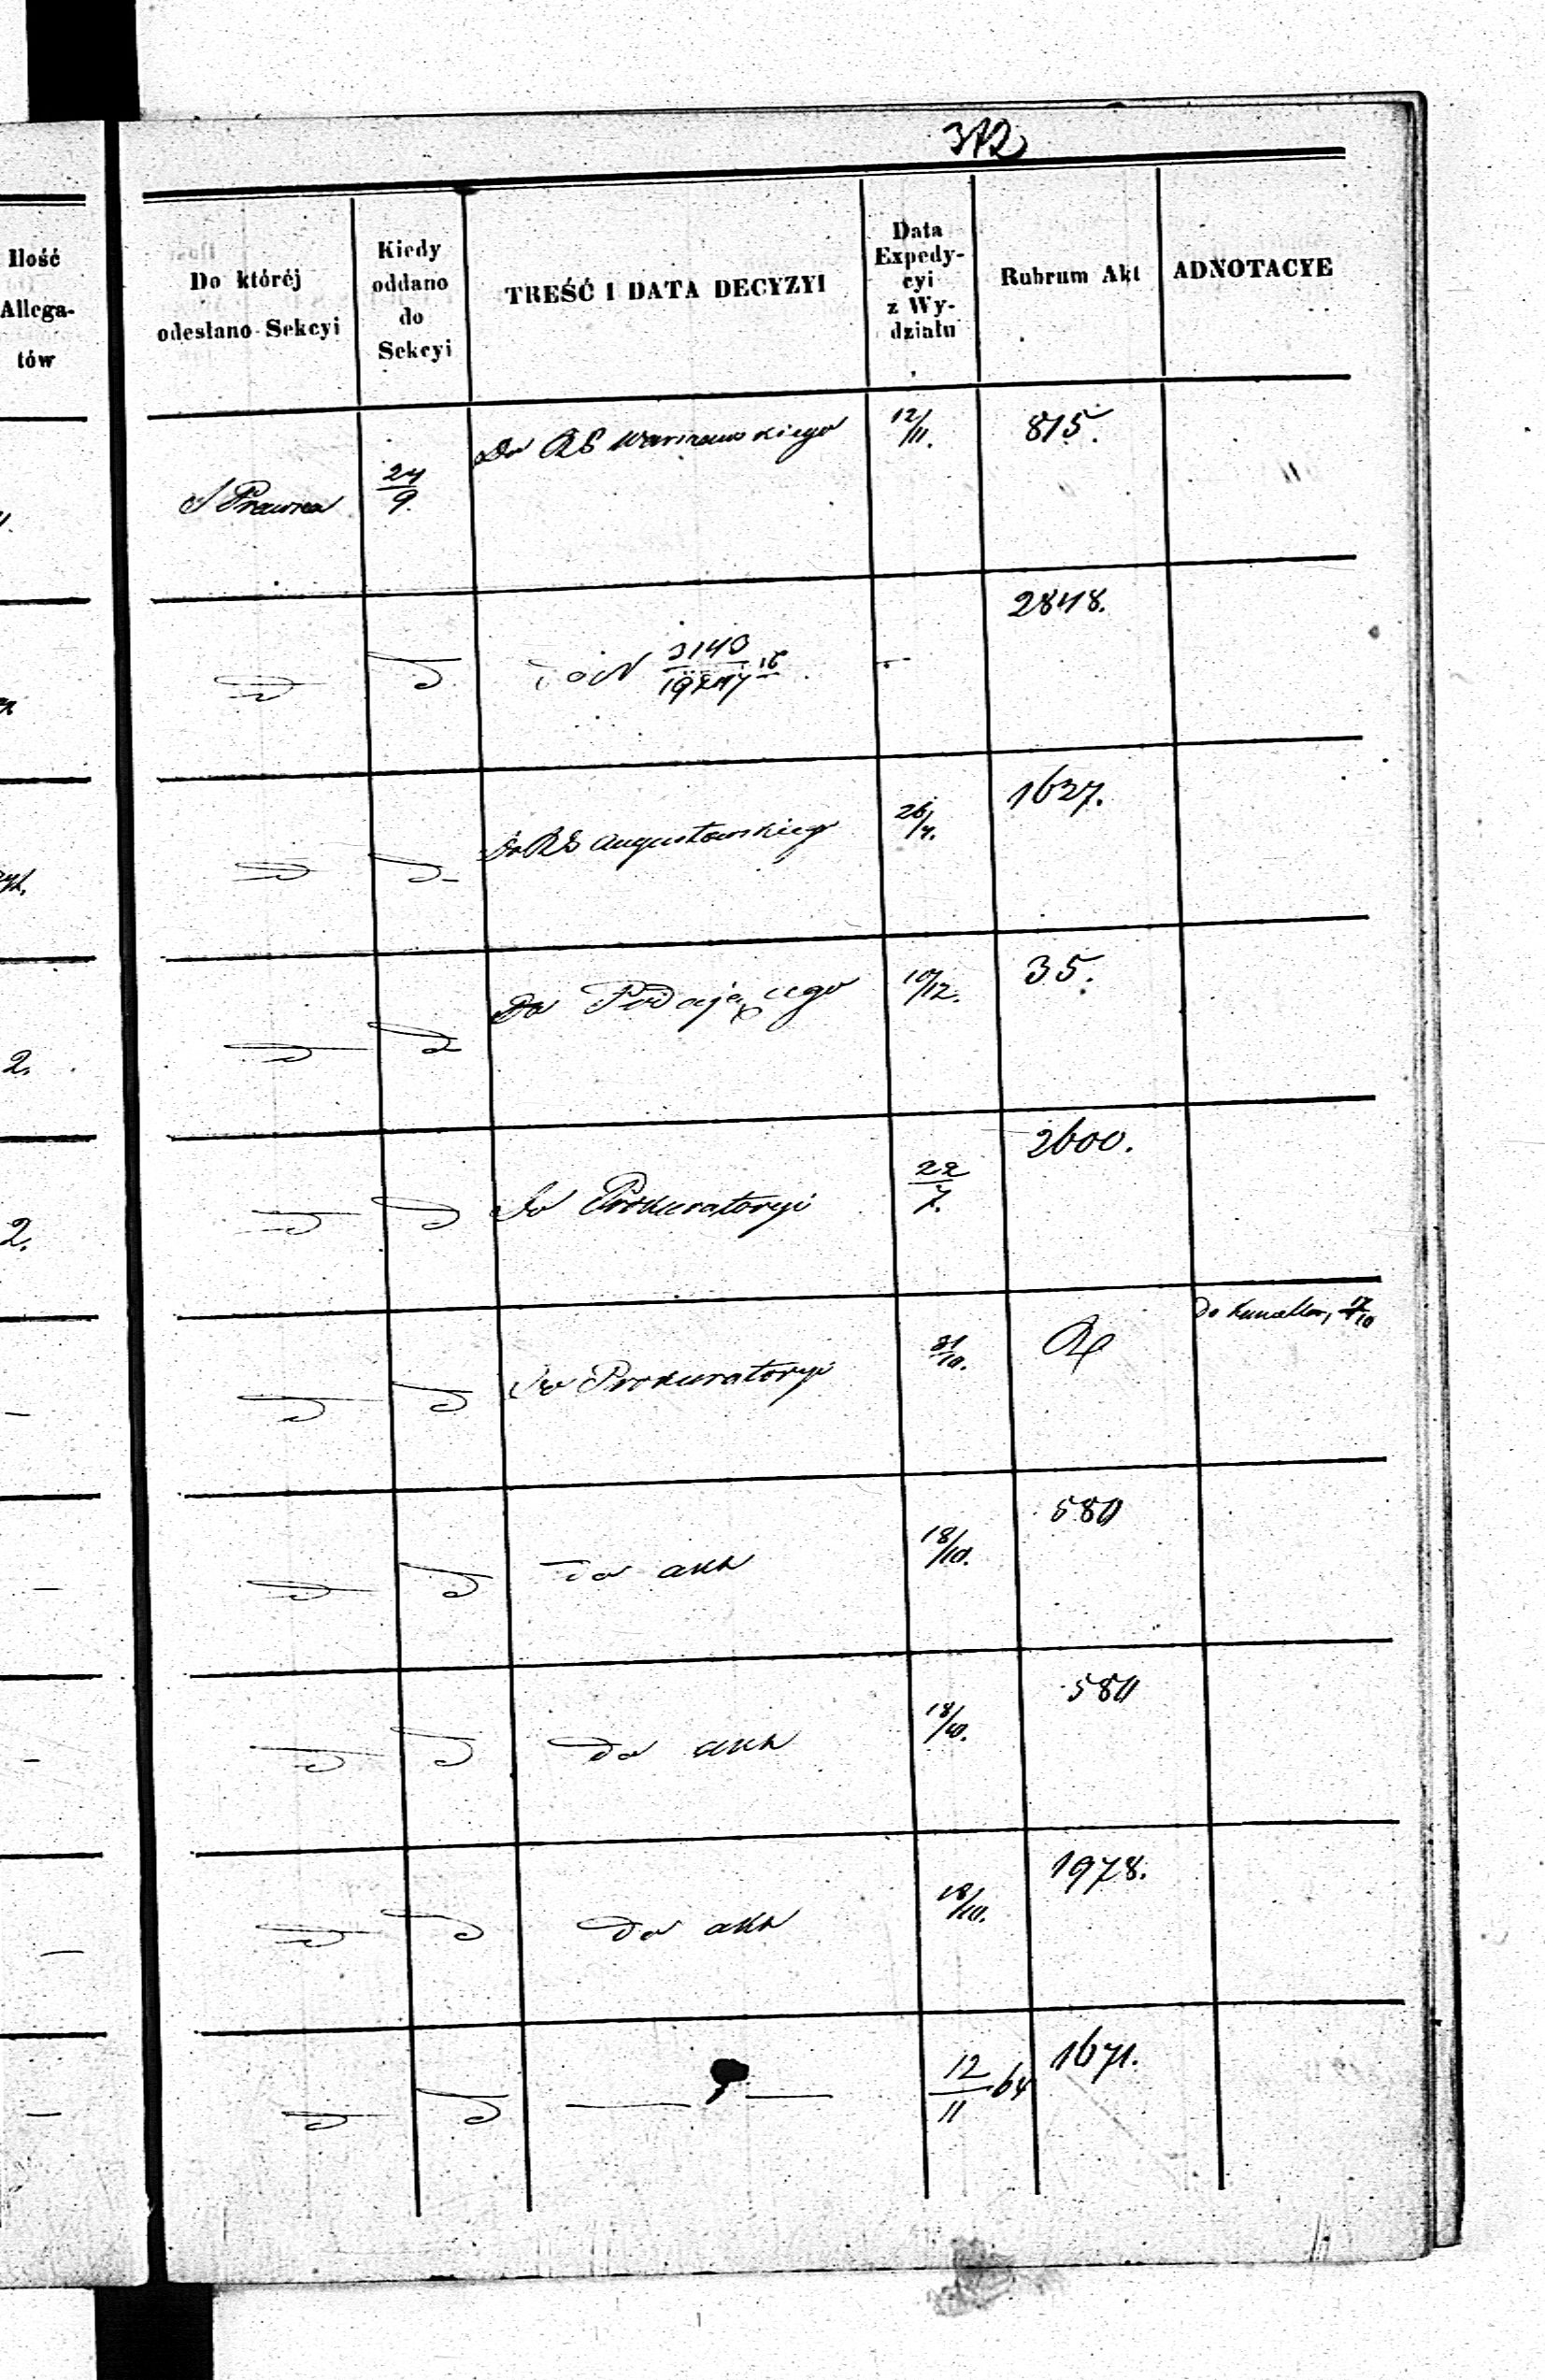 312
Ilość
Allega-
tów
Do któréj
odesłano Sekcyi
Kiedy
oddano
do
Sekcyi
TREŚĆ I DATA DECYZYI
Data
Expedy-
cyi
z Wy-
działu
Rubrum Akt
ADNOTACYE
S Prawna
24/9.
Do RG Warszawskiego
12/11.
815.
do N
2848.
Do RG Augustowskiego
1627.
2.
Do Podającego
10/12.
35.
2.
Do Prokuratoryi
22/7.
2600.
Do Prokuratoryi
31/10.
Do 17/10
do akt
18/10.
580
do akt
18/10.
580
do akt
18/10.
1978.
12/11 64
1671.